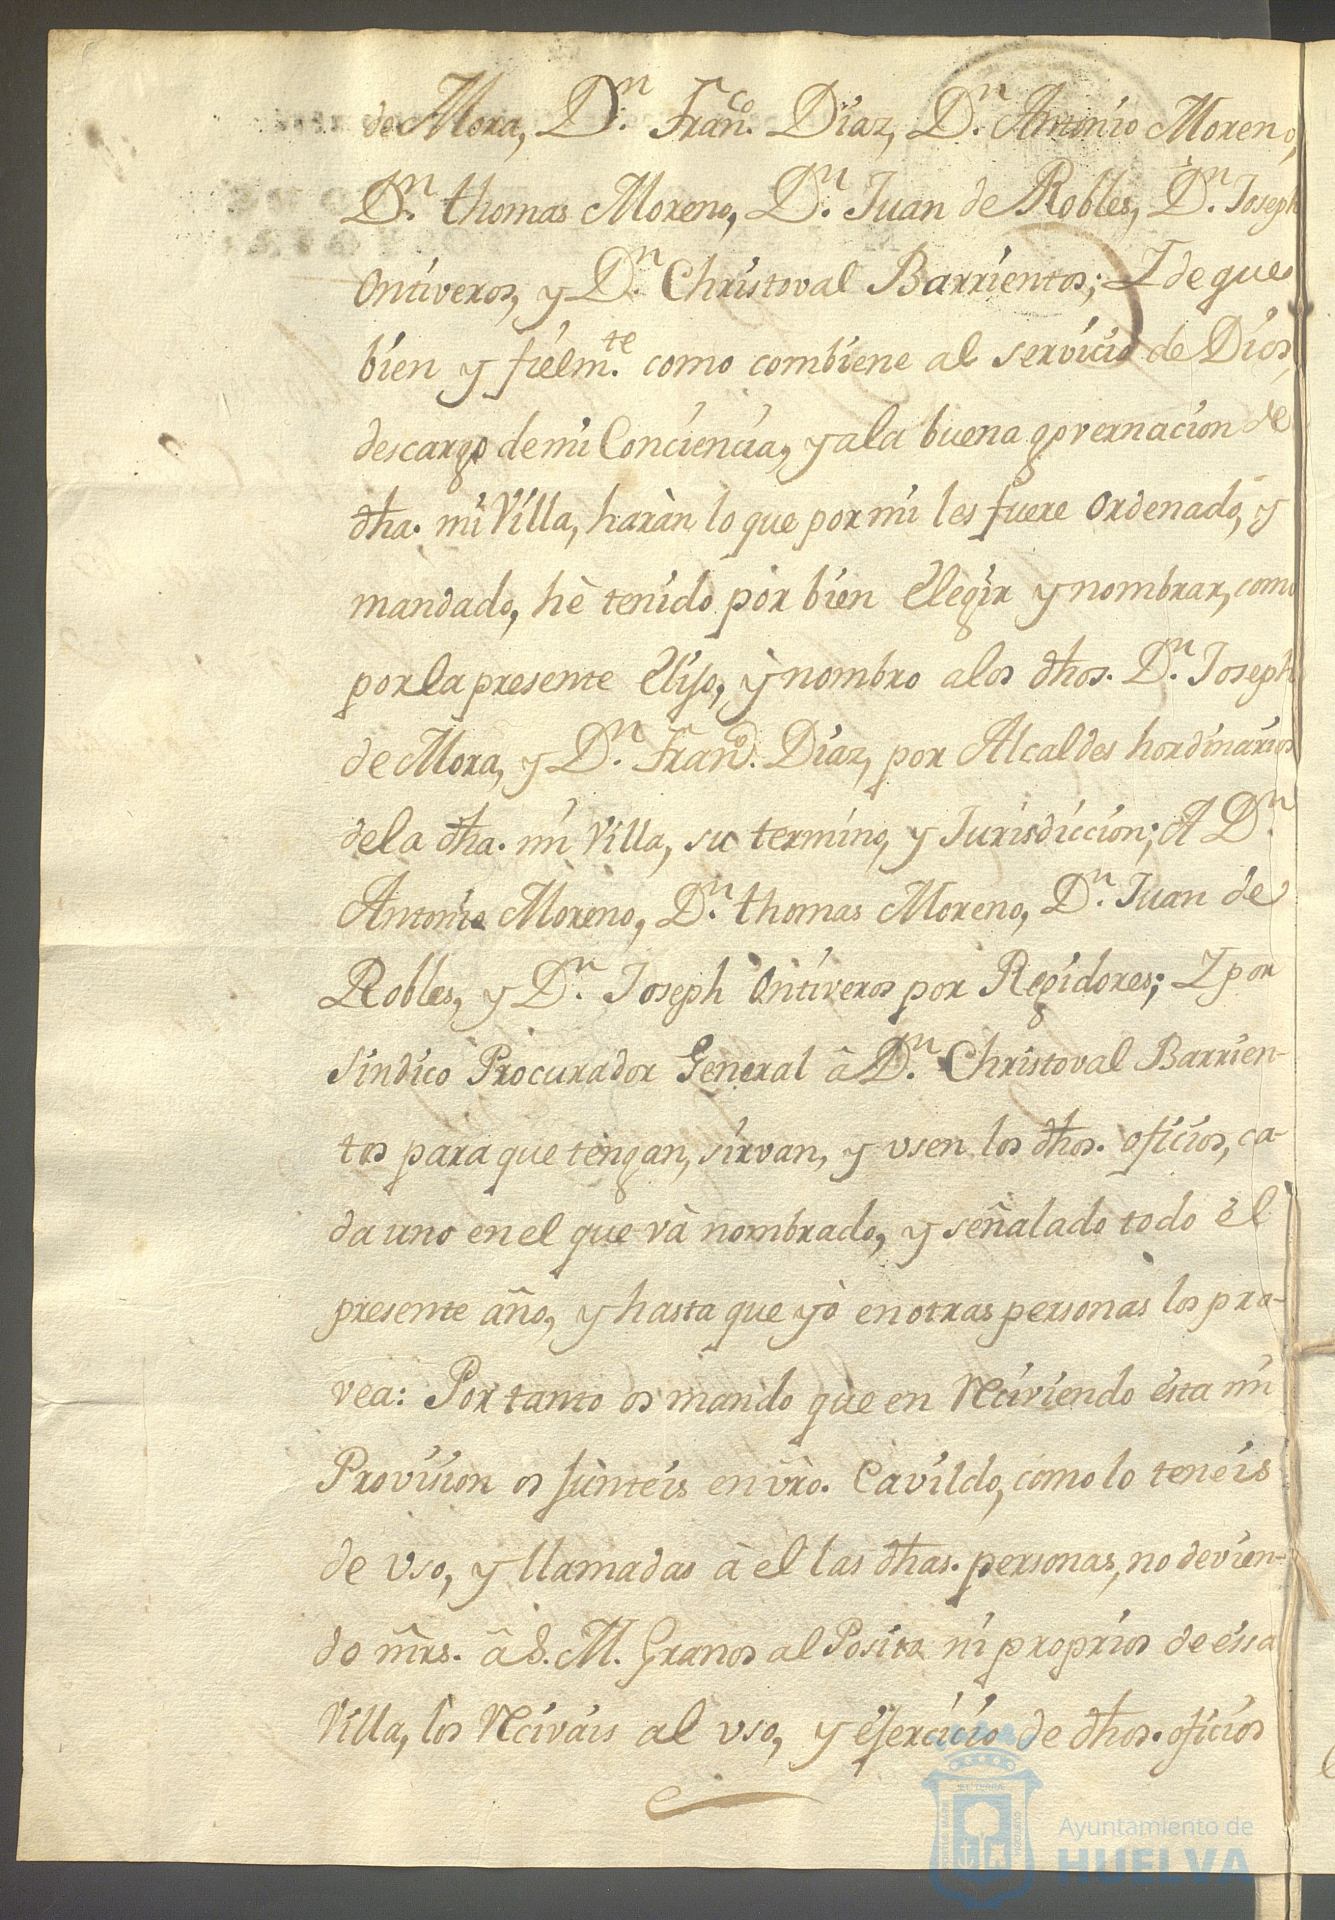 de Mora, D.ⁿ Fran.ᶜᵒ Diaz, D.ⁿ Antonio Moreno,
D.ⁿ thomas Moreno, D.ⁿ Juan de Robles, D.ⁿ Joseph
Ontiveros, y D.ⁿ Christoval Barrientos; Y de que
bien y fielm.ᵗᵉ como combiene al servicio de Dios,
descargo de mi Conciencia, y a la buena governacion de
dha. mi Villa, haràn lo que por mi les fuere ordenado, y
mandado, hè tenido por bien Elegir y nombrar, como
por la presente Elijo, y nombro a los dhos. D.ⁿ Joseph
de Mora, y D.ⁿ Fran.ᶜᵒ Diaz, por Alcaldes hordinarios
de la dha. mi Villa, su termino, y Jurisdiccion; A D.ⁿ
Antonio Moreno, D.ⁿ thomas Moreno, D.ⁿ Juan de
Robles, y D.ⁿ Joseph Ontiveros por Regidores; Y por
Sindico Procurador General â D.ⁿ Christoval Barrien-
tos para que tengan, sirvan, y vsen los dhos. oficios, ca-
da uno en el que và nombrado, y señalado todo el
presente año, y hasta que yò en otras personas los pro-
vea: Por tanto os mando que en Reciviendo esta mi
Provision os juntèis en vrò. Cavildo, como lo teneis
de vso, y llamadas à el las dhas. personas, no devien-
do mrs. â S. M. Granos al Posito ni proprios de essa
Villa, los Recivais al vso, y ejercicio de dhos. oficios
Ayuntamiento de
HUELVA